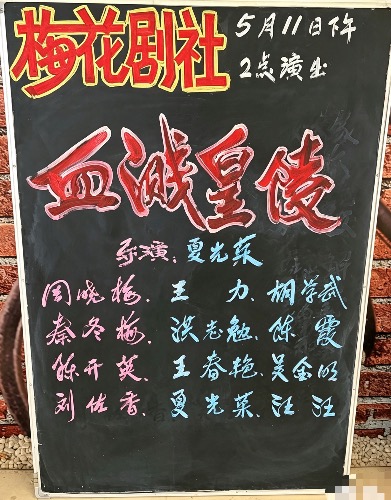 梅花剧社
5月11日下午
2点演出
血溅皇陵
导演:夏光菜
周晓梅、王 力、胡学武
秦冬梅、洪志勉、陈 霞
陈开英、王春艳、吴金明
刘佐香、夏光菜、汪 汪